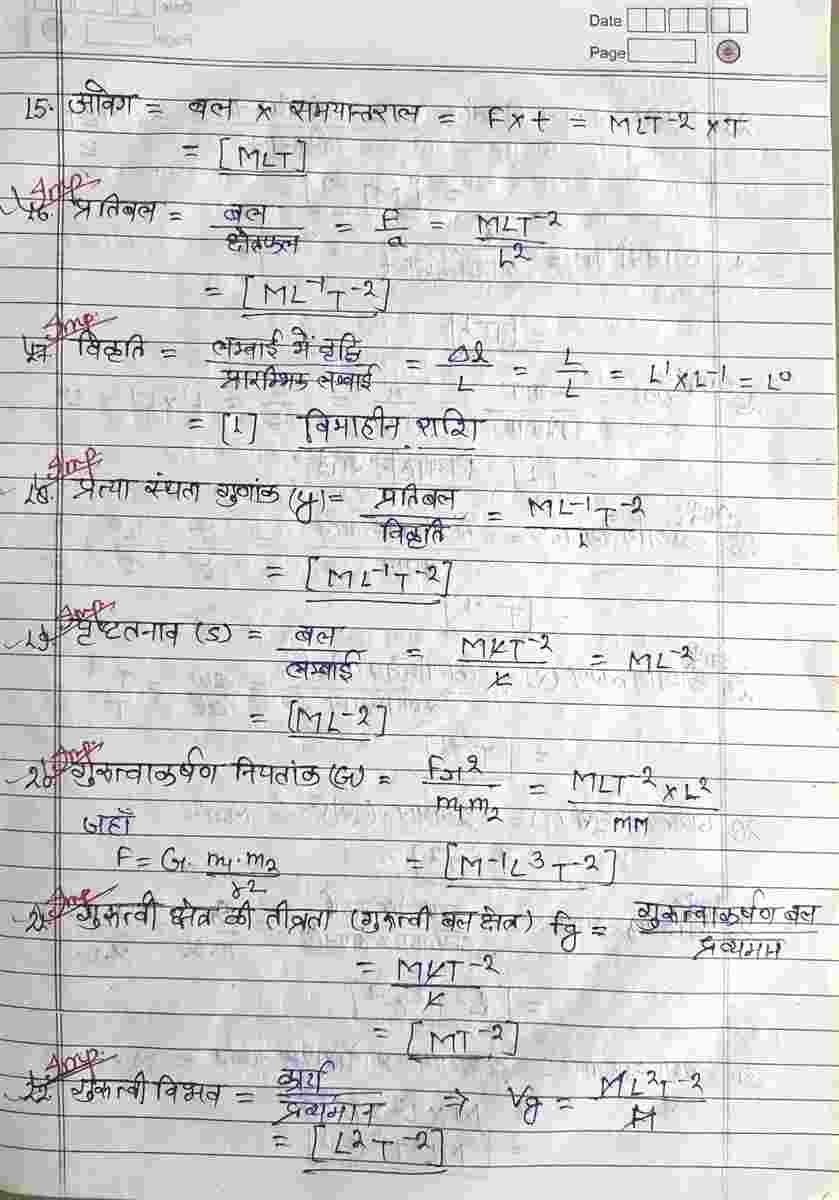 Date
Page
15. आवेग = बल x समयान्तराल = F x t = MLT-2 x T
= [MLT]
Imp.
16. प्रतिबल = बल/क्षेत्रफल = F/a = MLT-2/L2
= [ML-1T-2]
Imp.
17. विकृति = लम्बाई में वृद्धि/प्रारम्भिक लम्बाई = Δl/L = L/L = L1 x L-1 = L0
= [1] विमाहीन राशि
Imp.
18. प्रत्या स्थता गुणांक (y) = प्रतिबल/विकृति = ML-1T-2/1
= [ML-1T-2]
Imp.
19. पृष्ठतनाव (S) = बल/लम्बाई = MLT-2/L = ML-2
= [ML-2]
Imp.
20. गुरुत्वाकर्षण नियतांक (G) = Fr2/m1m2 = MLT-2 x L2/MM
जहाँ
F = G. m1.m2/r2 = [M-1L3T-2]
Imp.
21. गुरुत्वी क्षेत्र की तीव्रता (गुरुत्वी बल क्षेत्र) Fg = गुरुत्वाकर्षण बल/द्रव्यमान
= MLT-2/L
= [MT-2]
Imp.
22. गुरुत्वी विभव = कार्य/द्रव्यमान ⇒ Vg = ML2T-2/M
= [L2T-2]